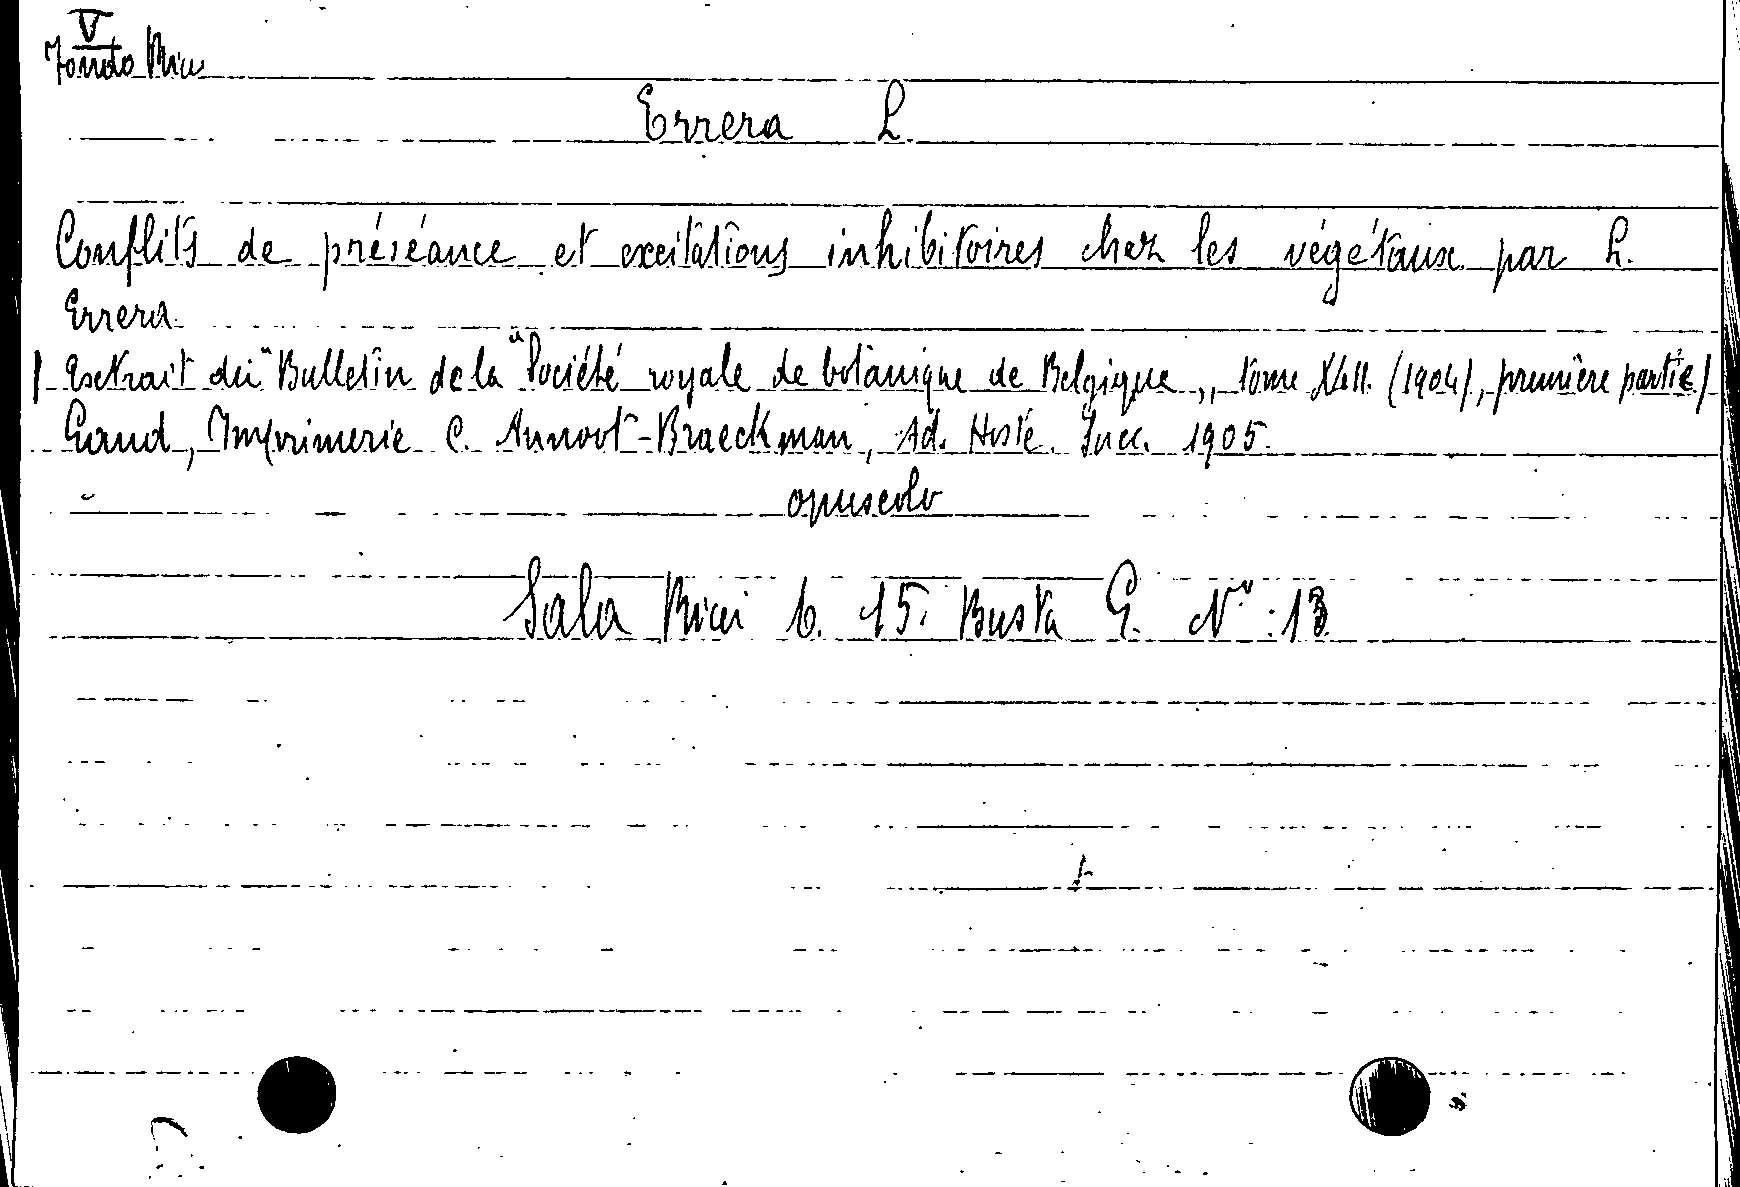 V
Fondo Ricci
Errera L.
Conflits de préséance et excitations inhibitoires chez les végétaux par L.
Errera
( Esctrait du "Bulletin de la "Société royale de botanique de Belgique,, tome XLII. (1904), première partie)
Gand, Imprimerie C. Annoot-Braeckman, Ad. Hoste. Succ. 1905.
opuscolo
Sala Ricci b. 15. Busta G. N°: 13